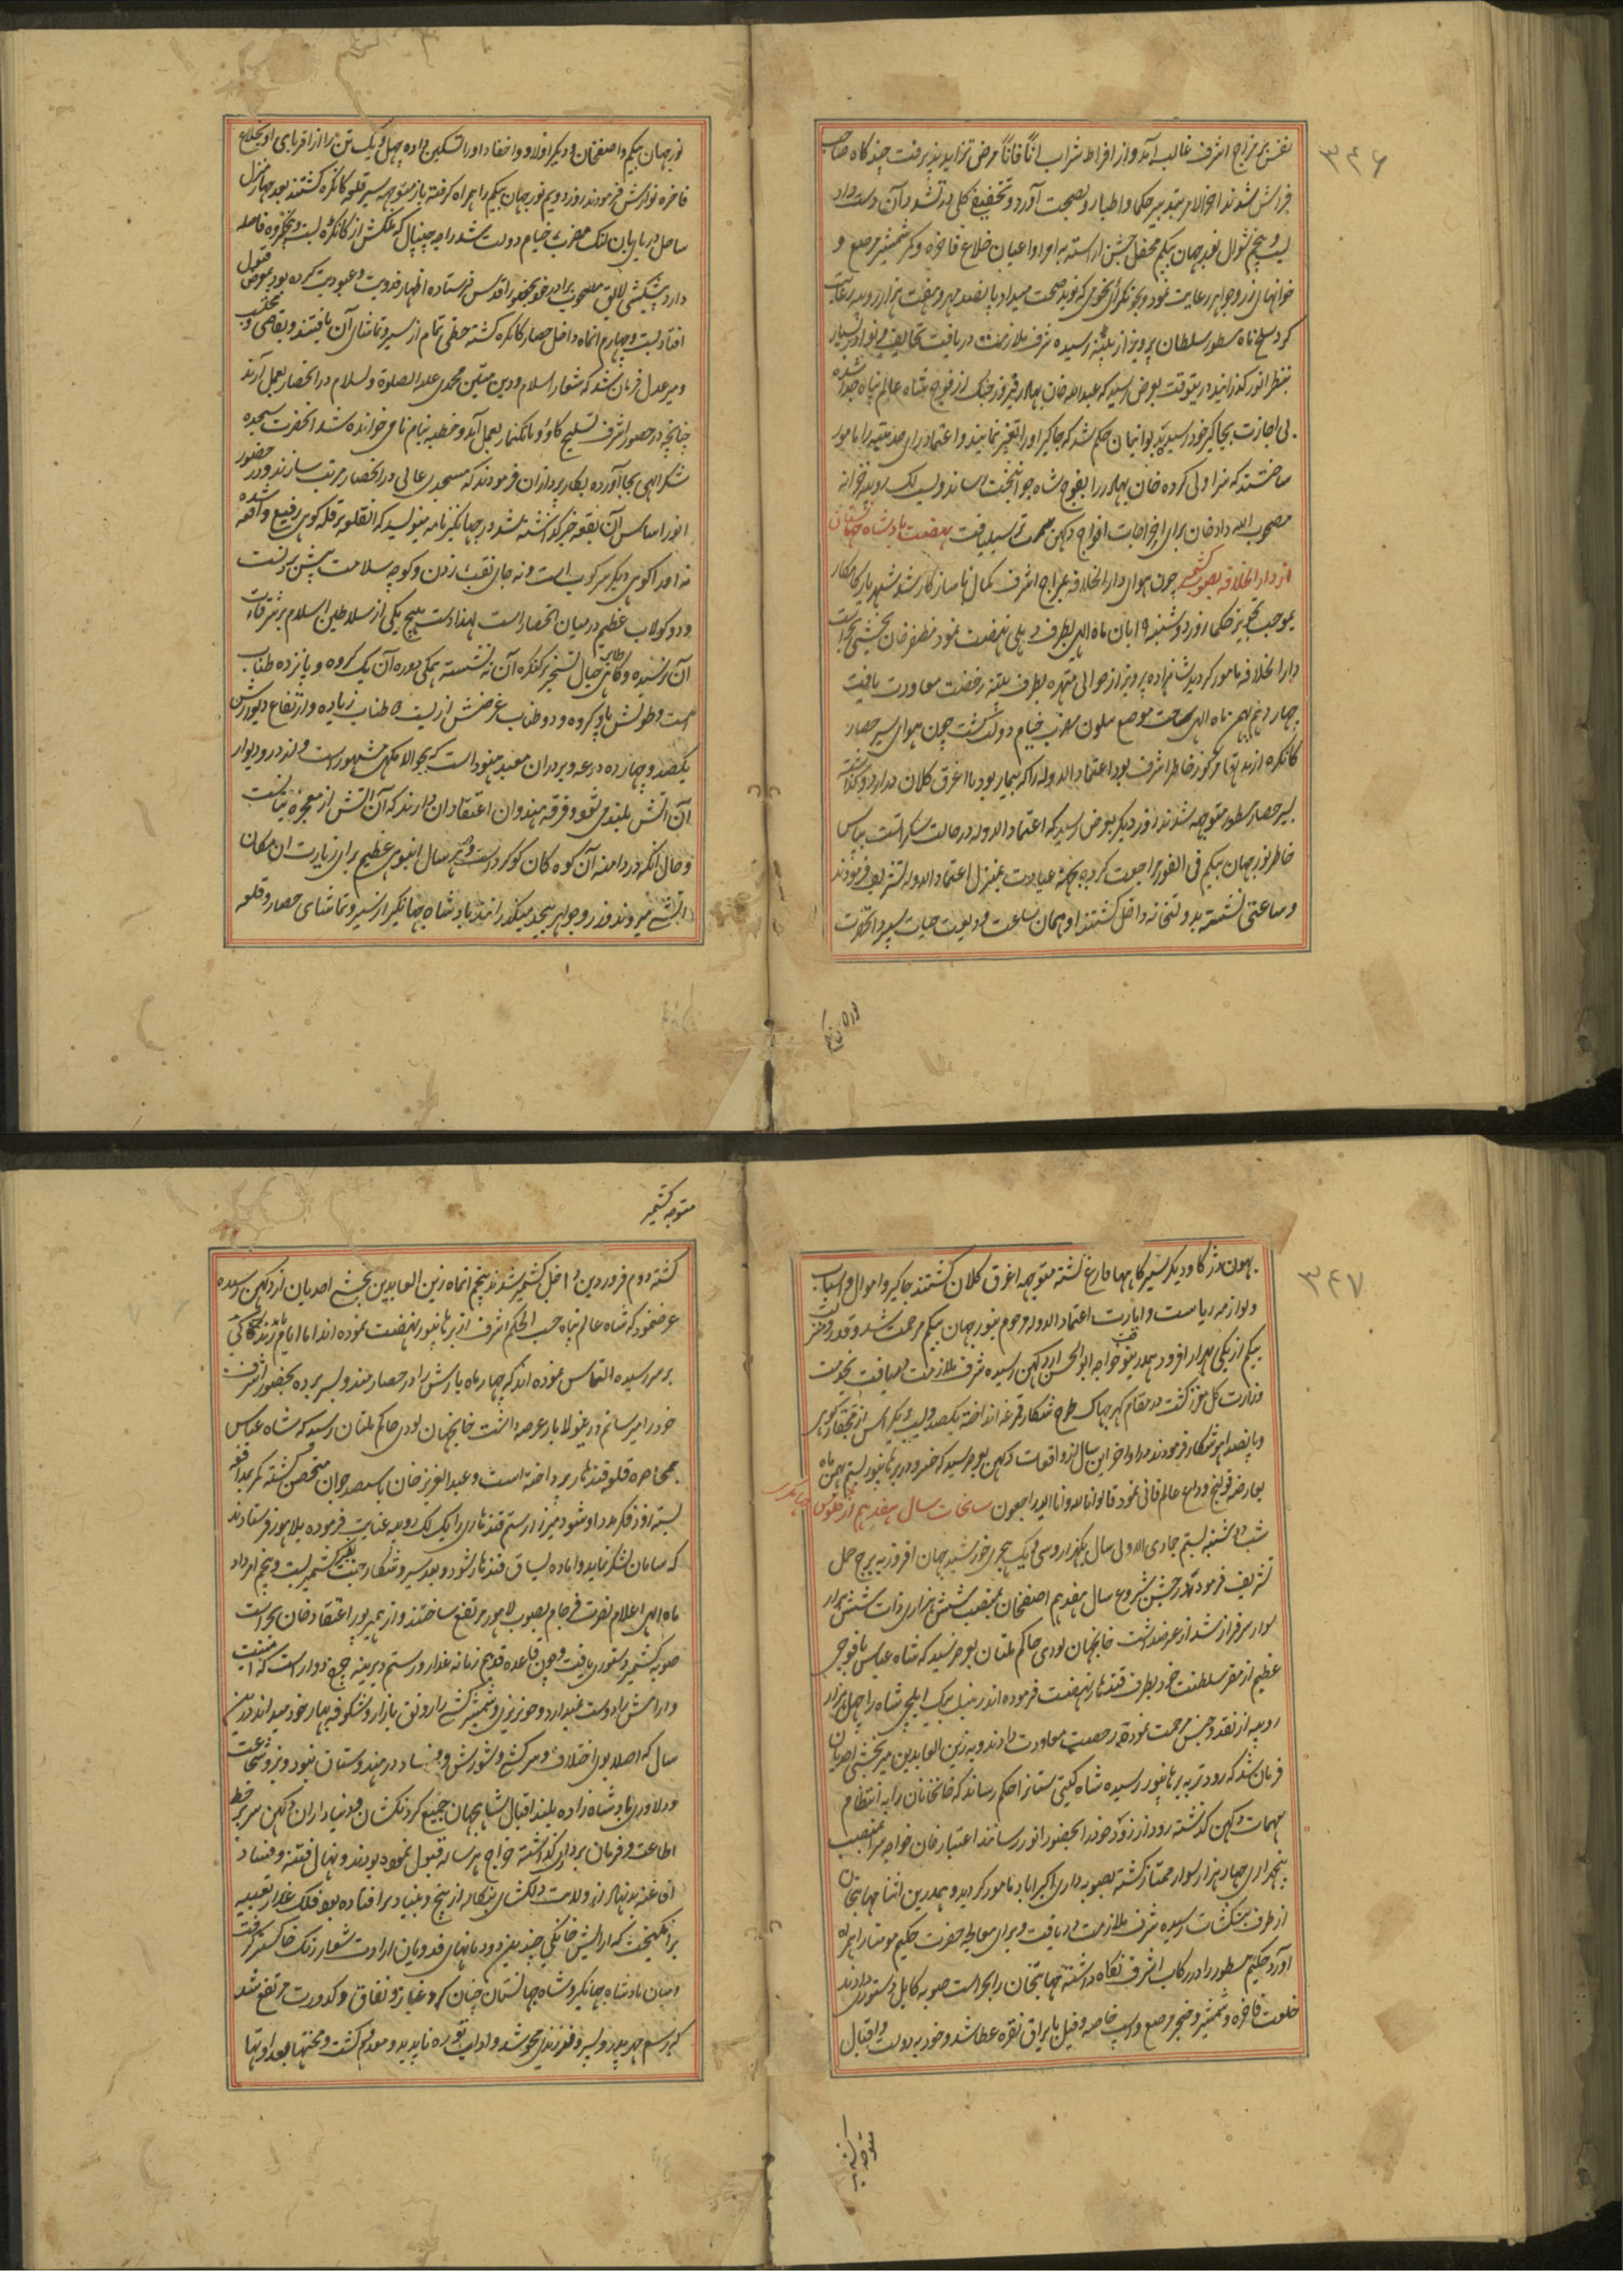 ۳۴۶
نفس بر مزاج اشرف غالب آمد و از افراط شراب آناً فاناً مرض تزاید پذیرفت چند گاه صاحب
فراش شدند اخرالامر بتدبیر حکما و اطبا رو بصحت آورد و تخفیف کلی
بیست و پنجم شوال نورجهان بیگم محفل جشن اراسته به امرا و اعیان خلاع فاخره و کمر شمشیر مرصع و
خوانهای زر و جواهر رعایت نمود و بجوتکرای منجم که نوید صحت میداد پانصد مهر و هفت هزار روپیه رعایت
کرد سلخ ماه مسطور سلطان پرویز از پتنه رسیده شرف ملازمت دریافت تحایف
بنظر انور گذرانید درینوقت بعرض رسید که عبدالله خان بهادر فیروز جنک از فوج شاه عالم پناه جدا شده
بی اجازت بجاگیر خود رسید بدیوانیان حکم شد که جاگیر او را تغیر نمایند و اعتماد رای را مامور
ساختند که سزاولی کرده خان بهادر را بفوج شاه جوانبخت رساند و بیست لک روپیه خزانه
مصحوب الله داد خان برای اخراجات افواج دکهن سمت ترسیل یافت نهضت پادشاه جهانستان
از دارالخلافه بصوب کشمیر چون هوای دارالخلافه بمزاج اشرف کمال ناسازگار شد شهریار کامکار
بموجب تجویز حکما روز دوشنبه ۱۹ ابان ماه الهی بطرف دهلی نهضت نمود مظفر خان بخشی بحراست
دارالخلافه مامور گردید شاهزاده پرویز از حوالی متهره بطرف پتنه رخصت معاودت یافت
چهاردهم بهمن ماه الهی ساحت موضع سلون مضرب خیام دولت گشت چون هوای سیر حصار
کانکره از مدتها مرکوز خاطر اشرف بود اعتماد الدوله را که بیمار بود با اغرق کلان در اردو گذاشته
بسیر حصار مسطور متوجه شدند روز دیگر بعرض رسید که اعتماد الدوله در حالت سکراتست بپاس
خاطر نورجهان بیگم فی الفور مراجعت کرده بجهت عیادت بمنزل اعتماد الدوله تشریف فرمودند
و ساعتی نشسته بدولتخانه داخل گشتند او همان ساعت ودیعت حیات سپرد انحضرت
نورجهان
نورجهان بیگم و اصفخان و دیگر اولاد و احفاد او را تسکین داده چهل و یک تن را از اقربای او بخلاع
فاخره نوازش فرمودند روز دویم نورجهان بیگم را همراه گرفته باز متوجه سیر قلعه کانکره گشتند بعد چهار منزل
ساحل دریای بان گنگ مضرب خیام دولت شد راجه چنپال که ملکش از کانکره بیست و پنجکروه فاصله
دارد پیشکش لایق مصحوب برادر خود بحضور اقدس فرستاده اظهار فدویت و عبودیت کرده بود بمعرض قبول
افتاد بیست و چهارم انماه داخل حصار کانکره گشته حظی تمام از سیر و تماشای آن یافتند و بقاضی و محتسب
و میر عدل فرمان شد که شعار اسلام و دین متین محمدی علیه الصلوة و السلام در انحصار بعمل آرند
چنانچه در حضور اشرف تسلیخ گاؤ و بانک نماز بعمل آمد و خطبه بنام نامی خوانده شد انحضرت سجده
شکر الهی بجا آورده بکار پردازان فرمودند که مسجدی عالی در انحصار مرتب سازند و در حضور
انور اساس آن بقعه خیر گذاشته شد در جهانگیر نامه مینویسد که انقلعه بر قله کوهی رفیع واقع شده
نه انرا کوهی دیگر سرکوب است و نه جای نقب زدن و کوچه سلامت پیش برفت
و دو کولاب عظیم درمیان انحصار است لهذا دست هیچ یکی از سلاطین اسلام بر شرفات
آن نرسیده و گاهی طایر خیال تسخیر بر کنکره آن ننشسته همگی دوره آن یک کروه و پانزده طناب
است و طولش پاو کروه و دو طناب عرضش از بیست طناب زیاده و ارتفاع دیوارش
یکصد و چهارده درعه و بر در ان معبد هنود است که بجوالا مکهی مشهور است و از در و دیوار
آن آتش بلند می شود و فرقه هندوان اعتقاد ان دارند که آن آتش از معجزه
و حال انکه در دامنه آن کوه کان کوکرد است و هر سال انبوهی عظیم برای زیارت ان مکان
اتشی میروند و زر و جواهر بیحد میگذرانند پادشاه جهانگیر از سیر و تماشای حصار و قلعه
۳۴۷
بهون و نگرکوت و دیگر سیرگاهها فارغ گشته متوجه اغرق کلان گشتند جاگیر و اموال و اسباب
و لوازمه ریاست و امارت اعتماد الدوله مرحوم بنورجهان بیگم مرحمت شد و قدر و منزلت
بیگم از یکی بهزار افزود همدرینوقت خواجه ابوالحسن از دکهن رسیده شرف ملازمت دریافت بخدمت
وزارت کل معزز گشت در مقام گهرجهاک طرح شکار قرغه انداخته یکصد و بیست و یک راس از قچقار کوهی
و پانصد اهو شکار فرمودند در اواخر این سال از واقعات دکهن بعرض رسید که خسرو در برهانپور بیستم بهمن ماه
بعارضه قولنج وداع عالم فانی نمود قالوا انا لله و انا الیه راجعون سانحات سال هفدهم از جلوس جهانگیری
شب دوشنبه بیستم جمادی الاولی سال یکهزار و سی و یک هجری خورشید جهان افروز به برج حمل
تشریف فرمود در جشن شروع سال هفدهم اصفخان بمنصب شش هزاری ذات شش هزار
سوار سرفراز شد از عرضداشت خانجهان لودی حاکم ملتان بعرض رسید که شاه عباس با فوجی
عظیم از مقر سلطنت خود بطرف قندهار نهضت فرموده اند زنبیل بیک ایلچی شاه را چهل هزار
روپیه از نقد و جنس مرحمت نموده رخصت معاودت دادند و به زین العابدین میر بخشی احدیان
فرمان شد که زودتر به برهانپور رسیده شاه گیتی ستانرا حکم رساند که خانخانان را به انتظام
مهمات دکهن گذشته زود از زود خود را بحضور انور رسانند اعتبار خان خواجه سرا بمنصب
پنجهزاری چهار هزار سوار ممتاز گشته بصوبه داری اکبراباد مامور گردید و همدرین اثنا مهابتخان
از طرف بنگشات رسیده شرف ملازمت دریافت و برای معالجه حضرت حکیم مومنا را همراه
آورد حکیم مسطور را در رکاب اشرف نگاه داشته مهابتخان را بحراست صوبه کابل دستوری دادند
خلعت فاخره و شمشیر و خنجر مرصع و اسپ خاصه و فیل با یراق نقره عطا شد و خود بدولت و اقبال
متوجه کشمیر
متوجه کشمیر
گشته دوم فروردین داخل کشمیر شدند پنجم انماه زین العابدین بخشی احدیان از دکهن رسیده
عرضنمود که شاه عالم پناه حسب الحکم اشرف از برهانپور نهضت نموده اند اما ایام بارندگی
بر سر رسیده التماس نموده اند که چهار ماه بارش را در حصار مندو بسر برده بحضور اشرف
خود را میرسانم درینولا باز عرضه داشت خانجهان لودی حاکم ملتان رسید که شاه عباس
بمحاصره قلعه قندهار پرداخته است و عبد العزیز خان با سیصد جوان متحصن گشته کمر بمدافعه
بسته زود فکر مدد او شود میرزا رستم قندهاری را یک لک روپیه عنایت فرموده بلاهور فرستادند
که سامان لشکر نماید و اماده یساق قندهار شود و بعد سیر و شکار جنت نظیر کشمیر بیست و پنجم امرداد
ماه الهی اعلام نصرت فرجام بصوب لاهور مرتفع ساختند و از هیره پور اعتقاد خان بحراست
صوبه کشمیر دستوری یافت و چون قاعده قدیم زمانه غدار و رسم دیرینه چرخ دوار است که امنیت
و ارامش را دوست نمیدارد و خونریزی و شمشیر کشی را رونق بازار و شکوفه بهار خود میداند درین
سال که اصلا بوی اختلاف و سرکشی و شورش و فساد در هندوستان نبود و بزور شجاعت
و دلاوری پادشاه زاده بلند اقبال شاهجهان جمیع گردنکشان و دنیاداران دکهن سر بر خط
اطاعت و فرمان برداری گذاشته خراج هر ساله قبول نموده بودند و نهال فتنه و فساد
افاغنه بدنهاد از ولایت دلکشای بنگاله از بیخ و بنیاد برافتاده بود فلک غدار تعبیه
برانگیخت که از آتش خانگی چندین دودمانهای فدویان ارادت شعار رنگ خاکستر گرفت
و میان پادشاه جهانگیر و شاه جهانستان چنان گرد غبار و نفاق و کدورت مرتفع شد
که رسم مهر پدر و پسر و فرزندی محو شد و اداب توره ناپدید و معدوم گشت و محنتها بعد او تها